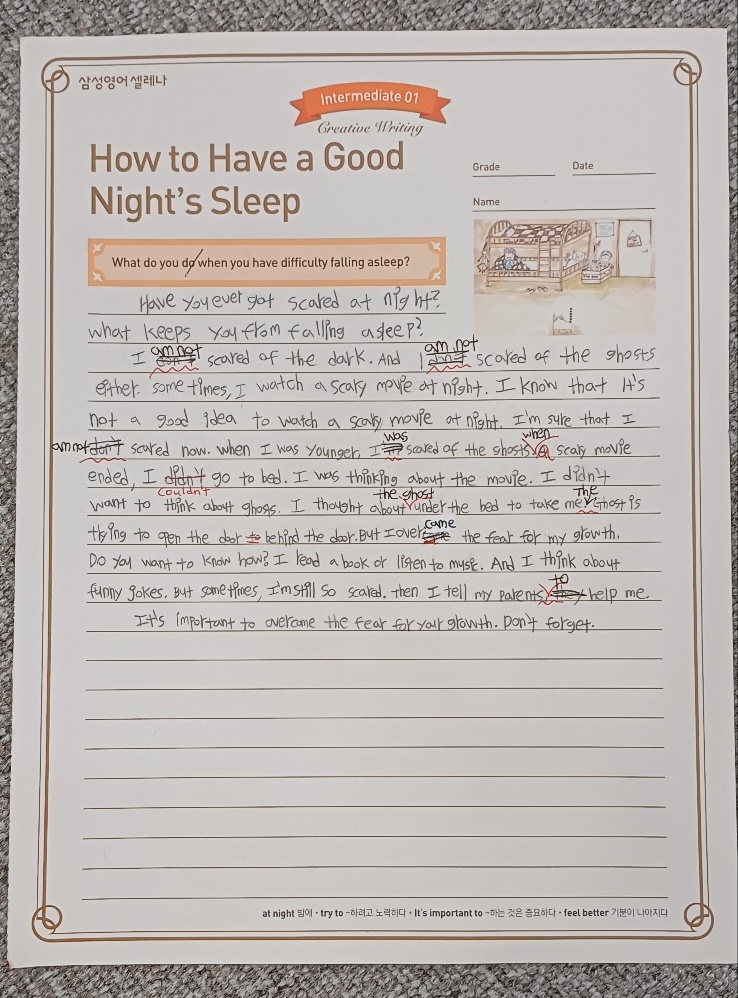 삼성영어 셀레나
Intermediate 01
Creative Writing
How to Have a Good
Night's Sleep
Grade
Date
Name
What do you do when you have difficulty falling asleep?
Have you ever got scared at night?
what keeps you from falling asleep?
am not am not
I don't scared of the dark. And I don't scared of the ghosts
either. sometimes, I watch a scary movie at night. I know that it's
not a good idea to watch a scary movie at night. I'm sure that I
was when
am not don't scared now. when I was younger, I scared of the ghosts a scary movie
ended, I didn't go to bed. I was thinking about the movie. I didn't
couldn't the ghost The
want to think about ghoss. I thought about under the bed to take me Ghost is
trying to open the door to behind the door. But I over came the fear for my growth.
Do you want to know how? I read a book or listen to musc. And I think about
to
funny jokes. But sometimes, I'm still so scared. then I tell my parents they help me.
It's important to overcome the fear for your growth. Don't forget.
at night 밤에 • try to ~하려고 노력하다 • It's important to ~하는 것은 중요하다 • feel better 기분이 나아지다